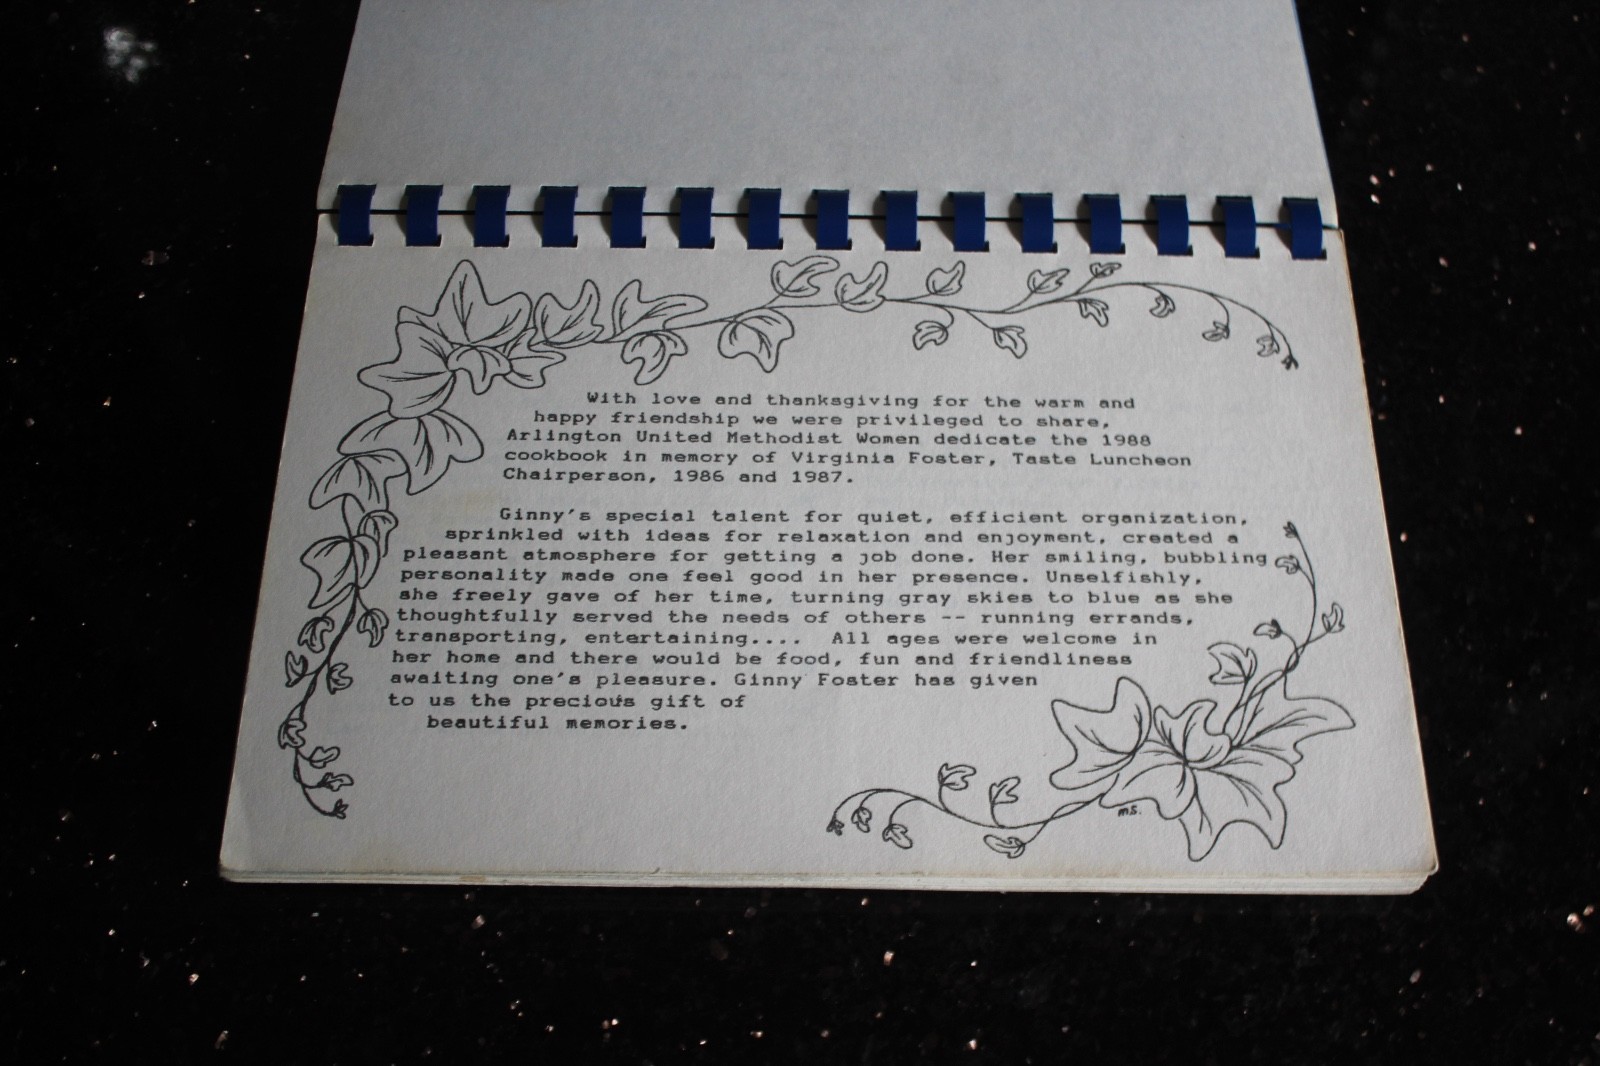 With love and thanksgiving for the warm and
happy friendship we were privileged to share,
Arlington United Methodist Women dedicate the 1988
cookbook in memory of Virginia Foster, Taste Luncheon
Chairperson, 1986 and 1987.
Ginny's special talent for quiet, efficient organization,
sprinkled with ideas for relaxation and enjoyment, created a
pleasant atmosphere for getting a job done. Her smiling, bubbling
personality made one feel good in her presence. Unselfishly,
she freely gave of her time, turning gray skies to blue as she
thoughtfully served the needs of others -- running errands,
transporting, entertaining.... All ages were welcome in
her home and there would be food, fun and friendliness
awaiting one's pleasure. Ginny Foster has given
to us the precious gift of
beautiful memories.
m.s.